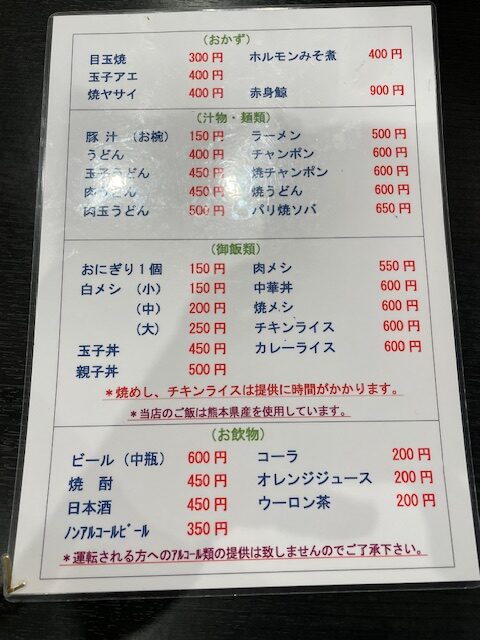 (おかず)
目玉焼 300円 ホルモンみそ煮 400円
玉子アエ 400円
焼ヤサイ 400円 赤身鯨 900円
(汁物・麺類)
豚汁 (お椀) 150円 ラーメン 500円
うどん 400円 チャンポン 600円
玉子うどん 450円 焼チャンポン 600円
肉うどん 450円 焼うどん 600円
肉玉うどん 500円 バリ焼ソバ 650円
(御飯類)
おにぎり1個 150円 肉メシ 550円
白メシ (小) 150円 中華丼 600円
(中) 200円 焼メシ 600円
(大) 250円 チキンライス 600円
玉子丼 450円 カレーライス 600円
親子丼 500円
*焼めし、チキンライスは提供に時間がかかります。
*当店のご飯は熊本県産を使用しています。
(お飲物)
ビール (中瓶) 600円 コーラ 200円
焼 酎 450円 オレンジジュース 200円
日本酒 450円 ウーロン茶 200円
ﾉﾝｱﾙｺｰﾙﾋﾞｰﾙ 350円
*運転される方へのｱﾙｺｰﾙ類の提供は致しませんのでご了承下さい。